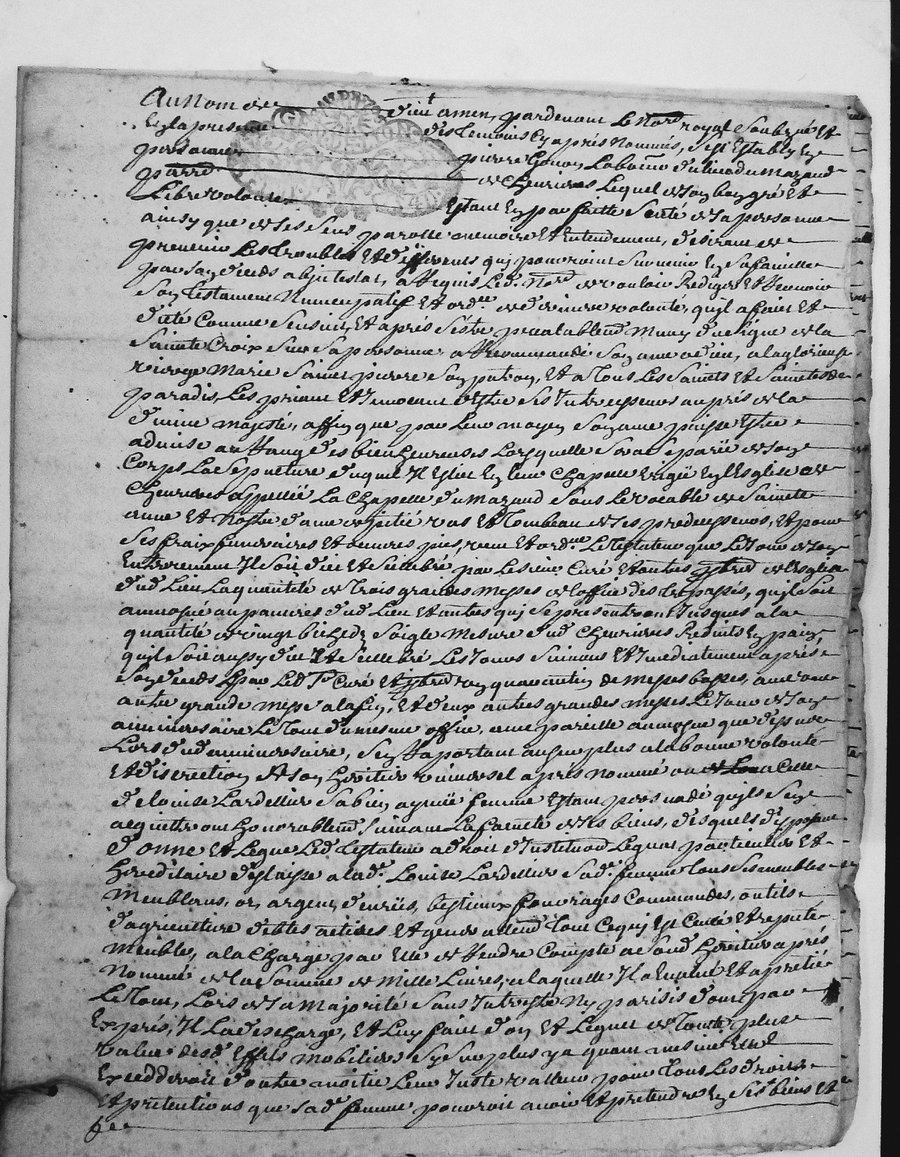 Au Nom de Dieu amen, pardevant le Nore royal soubzné et
En la presence des temoins cy apres nommés, s'est Establý en
personne pierre Laboureur du lieu du Mazand
parre de Chenrieres Lequel de son bon gré et
Libre volonté Estant En parfaitte Senté de sa personne
ainsy que de ses sens parolle memoire Et Entendement, desirant
prevenir Les troubles Et differents quj pourroint Survenir En sa famille
par son deceds abjntestat, a Requis Led. Nore de vouloir Rediger Et Recevoir
Son Testament Nuncupatif Et ordre de derniere volonté, qu'jl a fait Et
dicté Comme S'ensuit, Et après S'estre prealablemt Muny du signe de la
Sainte Croix Sur Sa personne, a Recommandé Son ame a dieu, a la glorieuse
vierge Marie Saint pierre Son patron, Et a Tous Les Saints Et Saintes de
paradis, Les priant Et Invocant d'Estre ses Intercesseurs auprès de la
divine Majesté, affin que par Leur moyen Son ame puisse Estre
admise au Rang des bien heureuses Lorsquelle Sera Separée de son
Corps La Sepulture duquel Il Eslit En leur Chapelle Erigée En l'Esglise de
Chenrieres appellée La Chapelle du Mazand Sous Le vocable de Sainte
anne Et Nostre dame de pitié vas Et Tombeau de ses predecesseurs, Et pour
Ses fraix funeraires Et oeuvres pies, veut Et ordne Le Testateur que Le Jour de son
Enterrement Il Soit dit Et Celebré par Les sieurs Curé Et autres pbres de l'Esglise
dud Lieu La quantité de Trois grandes Messes de L'office des trepassés, qu'jl Soit
aumosné aux pauvres dud Lieu Et autres quj Se presenteront Jusques a la
quantité de vingt bicheds Soigle Mesure dud Chenrieres Reduits En pain,
qu'jl Soit aussy dit Et Cellebré Les Jours Suivants Et Immediatement après
Son deceds par Led. Sr Curé Et pbres un quarantin de Messes basses, avec une
autre grande Messe a la fin, Et deux autres grandes Messes Le Jour de Son
anniversaire Le Tout du mesme office, une pareille aumosne que dessus
Lors dud anniversaire, S'En Raportant au surplus a la bonne volonté
Et discrection de Son Heritier universel après Nommé ou a Celle
de Louise Lardellier Sa bien aymée femme Estant persuadé qu'jls S'en
acquitteront Honorablemt Suivant La faculté de ses biens, desquels disposant
donne Et Legue Led. Testateur a droit d'Institution Leguat particulier Et
Hereditaire delaisse a lad. Louise Lardellier Sad. femme Tous Ses meubles
Meublans, or, argent, denrées, bestiaux fourrages Commandes, outils
d'agriculture debtes actives Et generalemt Tout Cequj Est Censé Et reputé
Meubles, a la Charge par Elle de Rendre Compte a Sond. Heritier après
Nommé de la Somme de Mille Livres, a laquelle Il a Evalué Et apretié
Le Tout, Lors de Sa Majorité Sans Interests Ny parisis dont par
Exprés, Il La descharge, Et Luy fait don Et Leguat de Toute plus
value desd. Effets Mobiliers S'y Surplus y a quant mesme Elle
Excedderoit d'outre moitié Leur Juste valleur pour Tous Les droits
Et pretentions que Sad. femme pourroit avoir Et pretendre En Ses biens Et